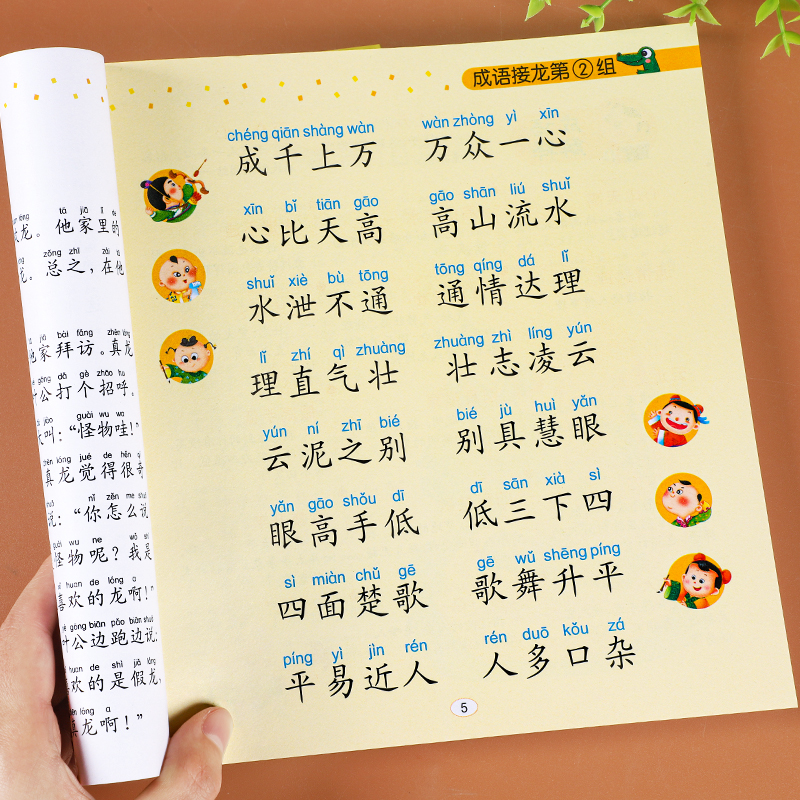 龙。他家里的
龙。总之，在他
家拜访。真龙
公打个招呼。
叫：“怪物哇！”
真龙觉得很奇
说：“你怎么说
怪物呢？我是
喜欢的龙啊！”
叶公边跑边说：
喜欢的是假龙，
真龙啊！”
成语接龙第②组
chéng qiān shàng wàn wàn zhòng yì xīn
成千上万 万众一心
xīn bǐ tiān gāo gāo shān liú shuǐ
心比天高 高山流水
shuǐ xiè bù tōng tōng qíng dá lǐ
水泄不通 通情达理
lǐ zhí qì zhuàng zhuàng zhì líng yún
理直气壮 壮志凌云
yún ní zhī bié bié jù huì yǎn
云泥之别 别具慧眼
yǎn gāo shǒu dī dī sān xià sì
眼高手低 低三下四
sì miàn chǔ gē gē wǔ shēng píng
四面楚歌 歌舞升平
píng yì jìn rén rén duō kǒu zá
平易近人 人多口杂
5